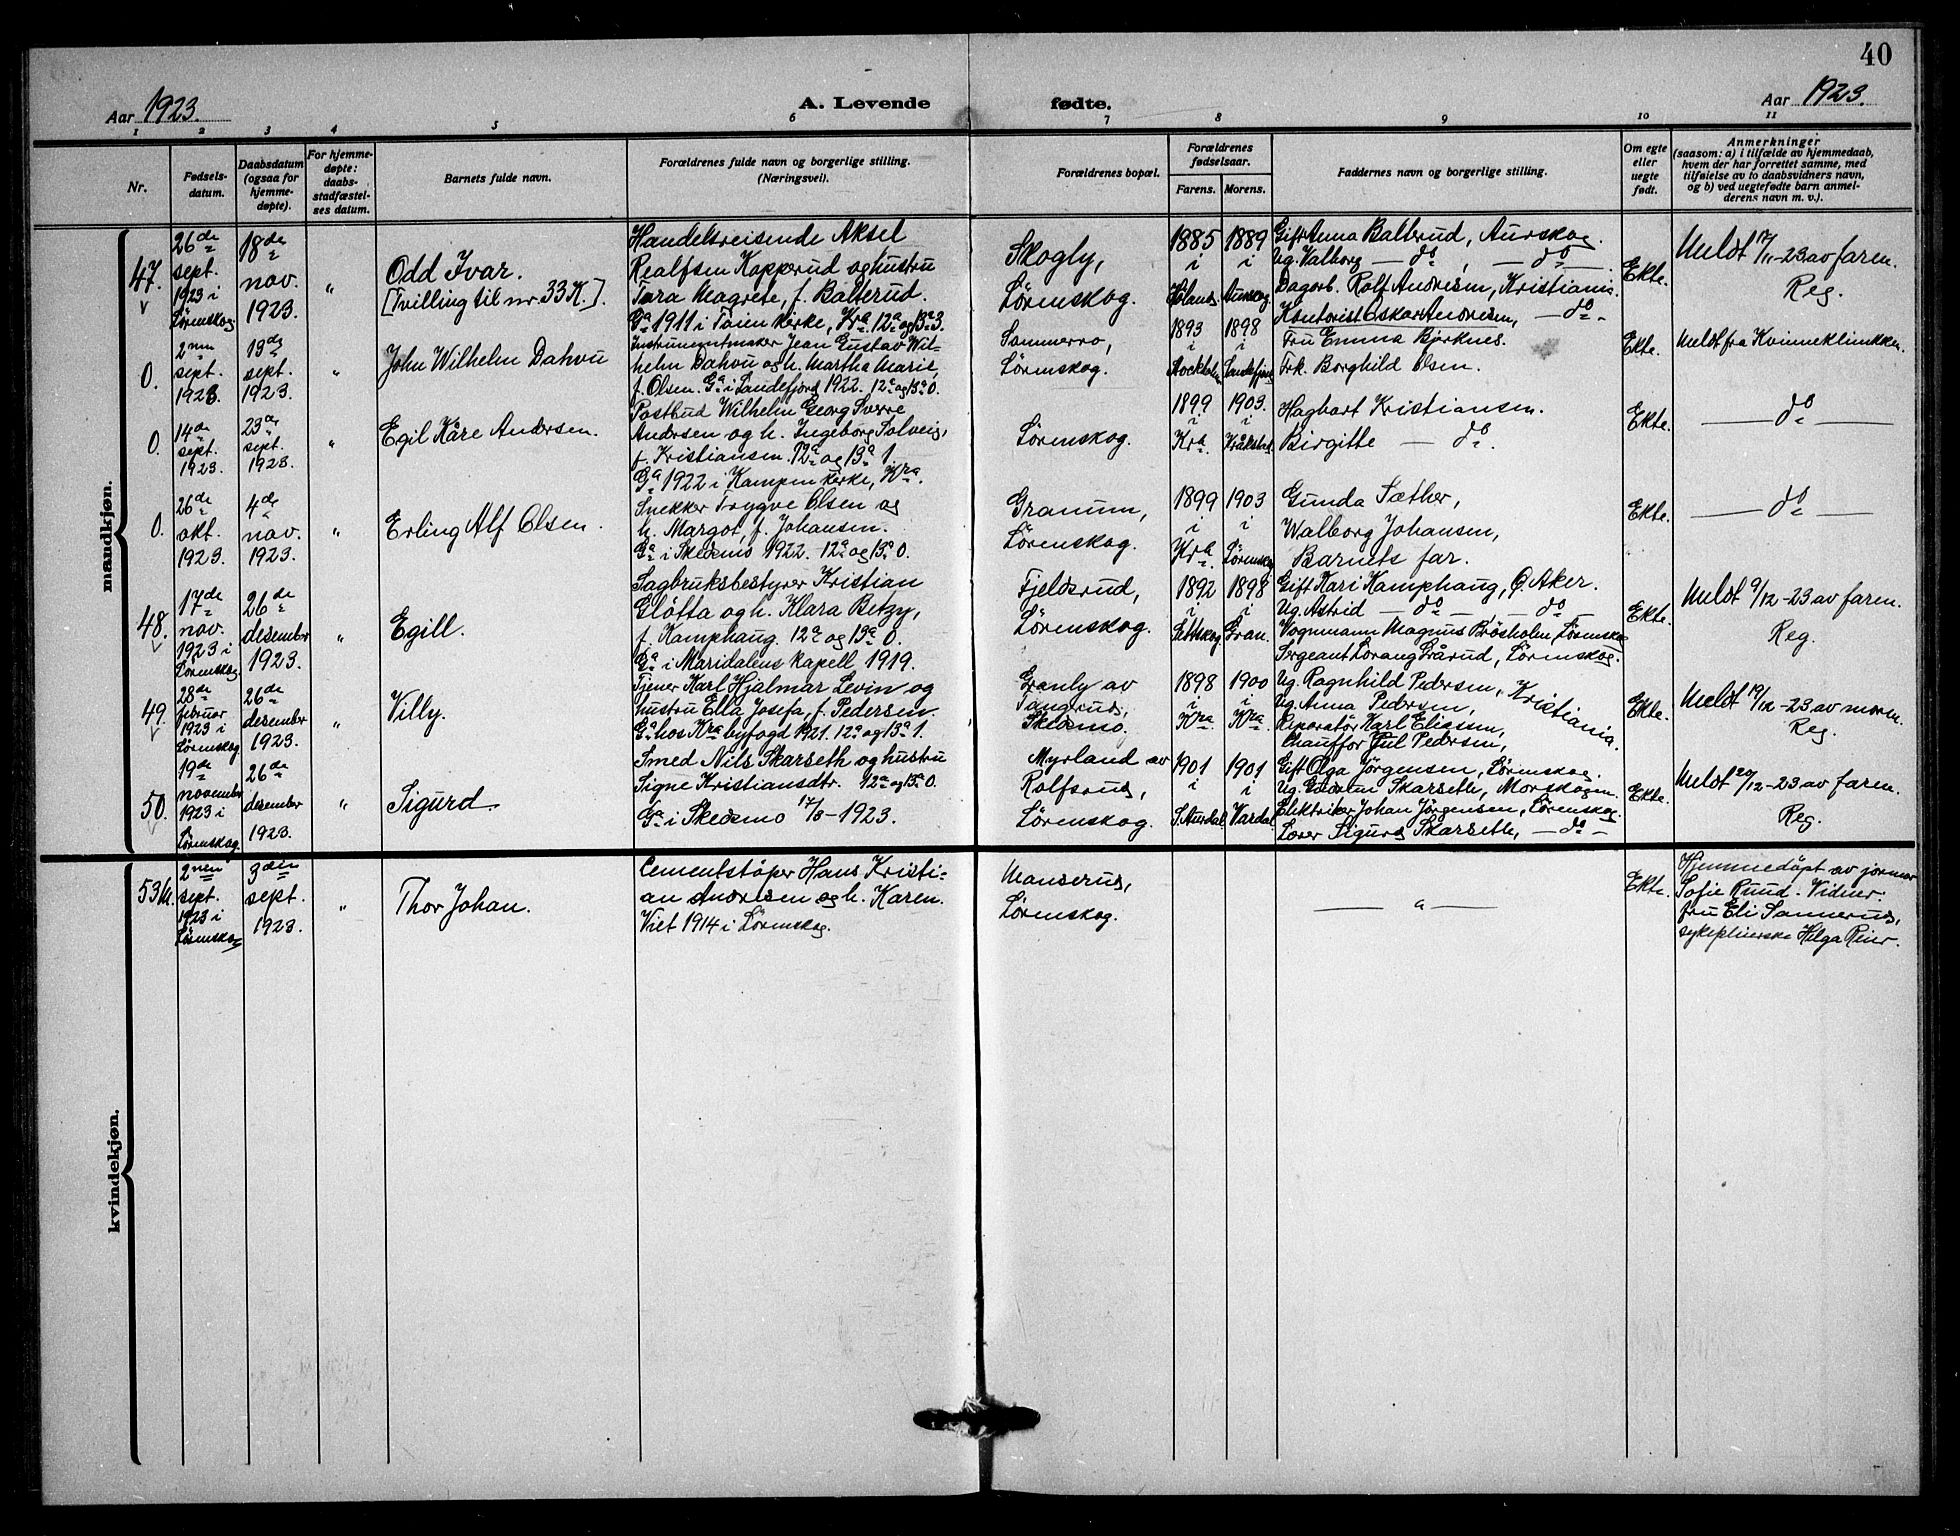 40
Aar 1923.
A. Levende fødte.
Aar 1923.
1 2 3 4 5 6 7 8 9 10 11
Nr.
Fødsels-
datum.
Daabsdatum
(ogsaa for
hjemme-
døpte).
For hjemme-
døpte:
daabs-
stadfæstel-
ses datum.
Barnets fulde navn.
Forældrenes fulde navn og borgerlige stilling.
(Næringsvei).
Forældrenes bopæl.
Forældrenes
fødselsaar.
Farens. Morens.
Faddernes navn og borgerlige stilling.
Om egte
eller
uegte
født.
Anmerkninger
(saasom: a) i tilfælde av hjemmedaab,
hvem der har forrettet samme, med
tilføielse av to daabsvidners navn,
og b) ved uegtefødte barn anmel-
derens navn m. v.).
mandkjøn.
47.
26de
sept.
1923 i
Lørenskog
18de
nov.
1923.
"
Odd Ivar.
[Tvilling til nr. 33 K.].
Handelsreisende Aksel
Realfsen Kopperud og hustru
Tora Magrete, f. Balterud.
Ga 1911 i Tøien kirke, Kra. 12a og 13a 3.
Skogly,
Lørenskog.
1885
i
Høland.
1889
i
Aurskog
Gift Anna Balterud, Aurskog.
Ug. Valborg — do , — do
Dagarb. Rolf Andresen, Kristiania.
Kontorist Oskar Andresen, — do —
Ekte.
Meldt 17/11-23 av faren.
Reg.
0.
2nen
sept.
1923.
19de
sept.
1923.
"
John Wilhelm Dahvu
Instrumentmaker Jean Gustav Wil-
helm Dahvu og h. Martha Marie,
f. Olsen. Ga i Sandefjord 1922. 12a og 13a 0.
Sommerro,
Lørenskog.
1893
i
Stockholm
1898
i
Sandefjord
Fru Emma Bjørknes.
Frk. Borghild Olsen.
Ekte.
Meldt fra Kvinneklinikken.
0.
14de
sept.
1923.
23de
sept.
1923.
"
Egil Kåre Andersen.
Postbud Wilhelm Georg Sverre
Andersen og h. Ingeborg Solveig,
f. Kristiansen. 12a og 13a 1.
Ga 1922 i Kampen kirke, Kra.
Lørenskog.
1899
i
Kra.
1903.
i
Kråkstad
Hagbart Kristiansen.
Birgitte — do.
Ekte.
— do —
0.
26de
okt.
1923.
4de
nov.
1923.
"
Erling Alf Olsen.
Snekker Trygve Olsen og
h. Margot, f. Johansen.
Ga i Skedsmo 1922. 12a og 13a 0.
Granum,
Lørenskog.
1899
i
Kra
1903
i
Lørenskog
Gunda Sæther,
Walborg Johansen,
Barnets far.
Ekte.
— do —
48.
17de
nov.
1923 i
Lørenskog
26de
desember
1923.
"
Egill.
Sagbruksbestyrer Kristian
Gløtta og h. Klara Betzy,
f. Kamphaug. 12a og 13a 0.
Ga i Maridalens kapell 1919.
Fjeldsrud,
Lørenskog.
1892
i
Setskog
1898
i
Gran.
Gift Kari Kamphaug, Ø. Aker.
Ug. Astrid — do — , — do
Vognmann Magnus Bråsholm, Lørenskog
Sergeant Lorang Lrårud, Lørenskog.
Ekte.
Meldt 9/12-23 av faren.
Reg.
49.
28de
februar
1923 i
Lørenskog
26de
desember
1923.
"
Villy.
Tjener Karl Hjalmar Levin og
hustru Ella Josefa, f. Pedersen.
Ga hos Kra byfogd 1921. 12a og 13a 1.
Granly av
Tangrud,
Skedsmo.
1898
i
Kra.
1900
i
Kra.
Ug. Ragnhild Pedersen,
Ug. Anna Pedersen,
Reparatør Karl Eliassen,
Chauffør Jul Pedersen,
Kristiania.
Ekte.
Meldt 19/12-23 av moren.
Reg.
50.
19de
november
1923 i
Lørenskog
26de
desember
1923.
"
Sigurd.
Smed Nils Skarseth og hustru
Signe Kristiansdtr. 12a og 13a 0.
Ga i Skedsmo 17/8-1923.
Myrland av
Rolfsrud,
Lørenskog.
1901
i
S. Aurdal
1901
i
Vardal
Gift Olga Jørgensen, Lørenskog.
Ug. Gudrun Skarseth, Morskogen.
Elektriker Johan Jørgensen, Lørenskog
Lærer Sigurd Skarseth, — do —
Ekte.
Meldt 20/12-23 av faren.
Reg.
kvindekjøn.
53 M.
2nen
sept.
1923 i
Lørenskog
3die
sept.
1923.
"
Thor Johan.
Cementstøper Hans Kristi-
an Andresen og h. Karen.
Viet 1914 i Lørenskog.
Manserud,
Lørenskog.
— " —
Ekte.
Hjemmedøpt av jormor
Sofie Ruud. Vidner:
fru Eli Sannerud,
sykepleierske Helga Reier.